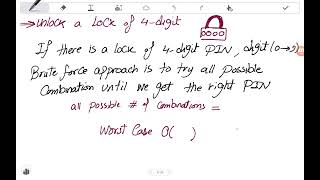 → Unlock a Lock of 4-digit
If there is a lock of 4-digit PIN, digit(0→9)
Brute force approach is to try all possible
Combination until we get the right PIN
all possible # of combinations =
Worst Case O( )